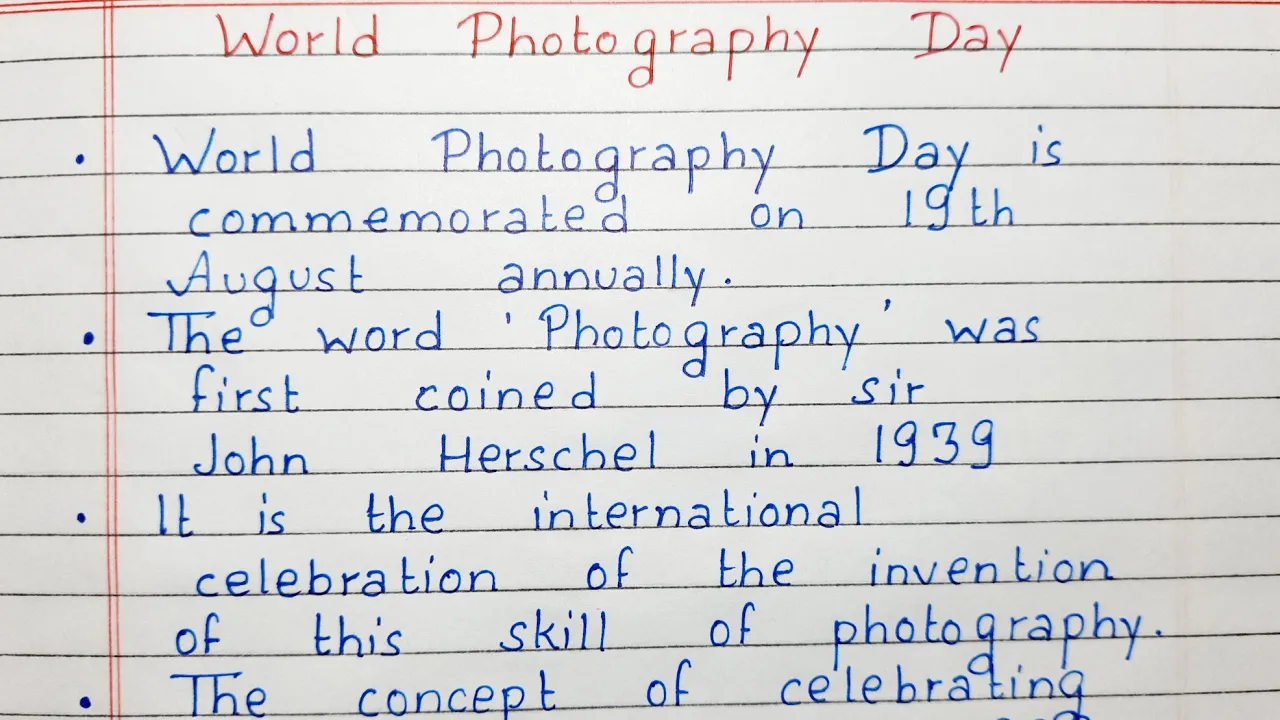 World Photography Day
• World Photography Day is
commemorated on 19th
August annually.
• The word 'Photography' was
first coined by sir
John Herschel in 1939
• It is the international
celebration of the invention
of this skill of photography.
• The concept of celebrating